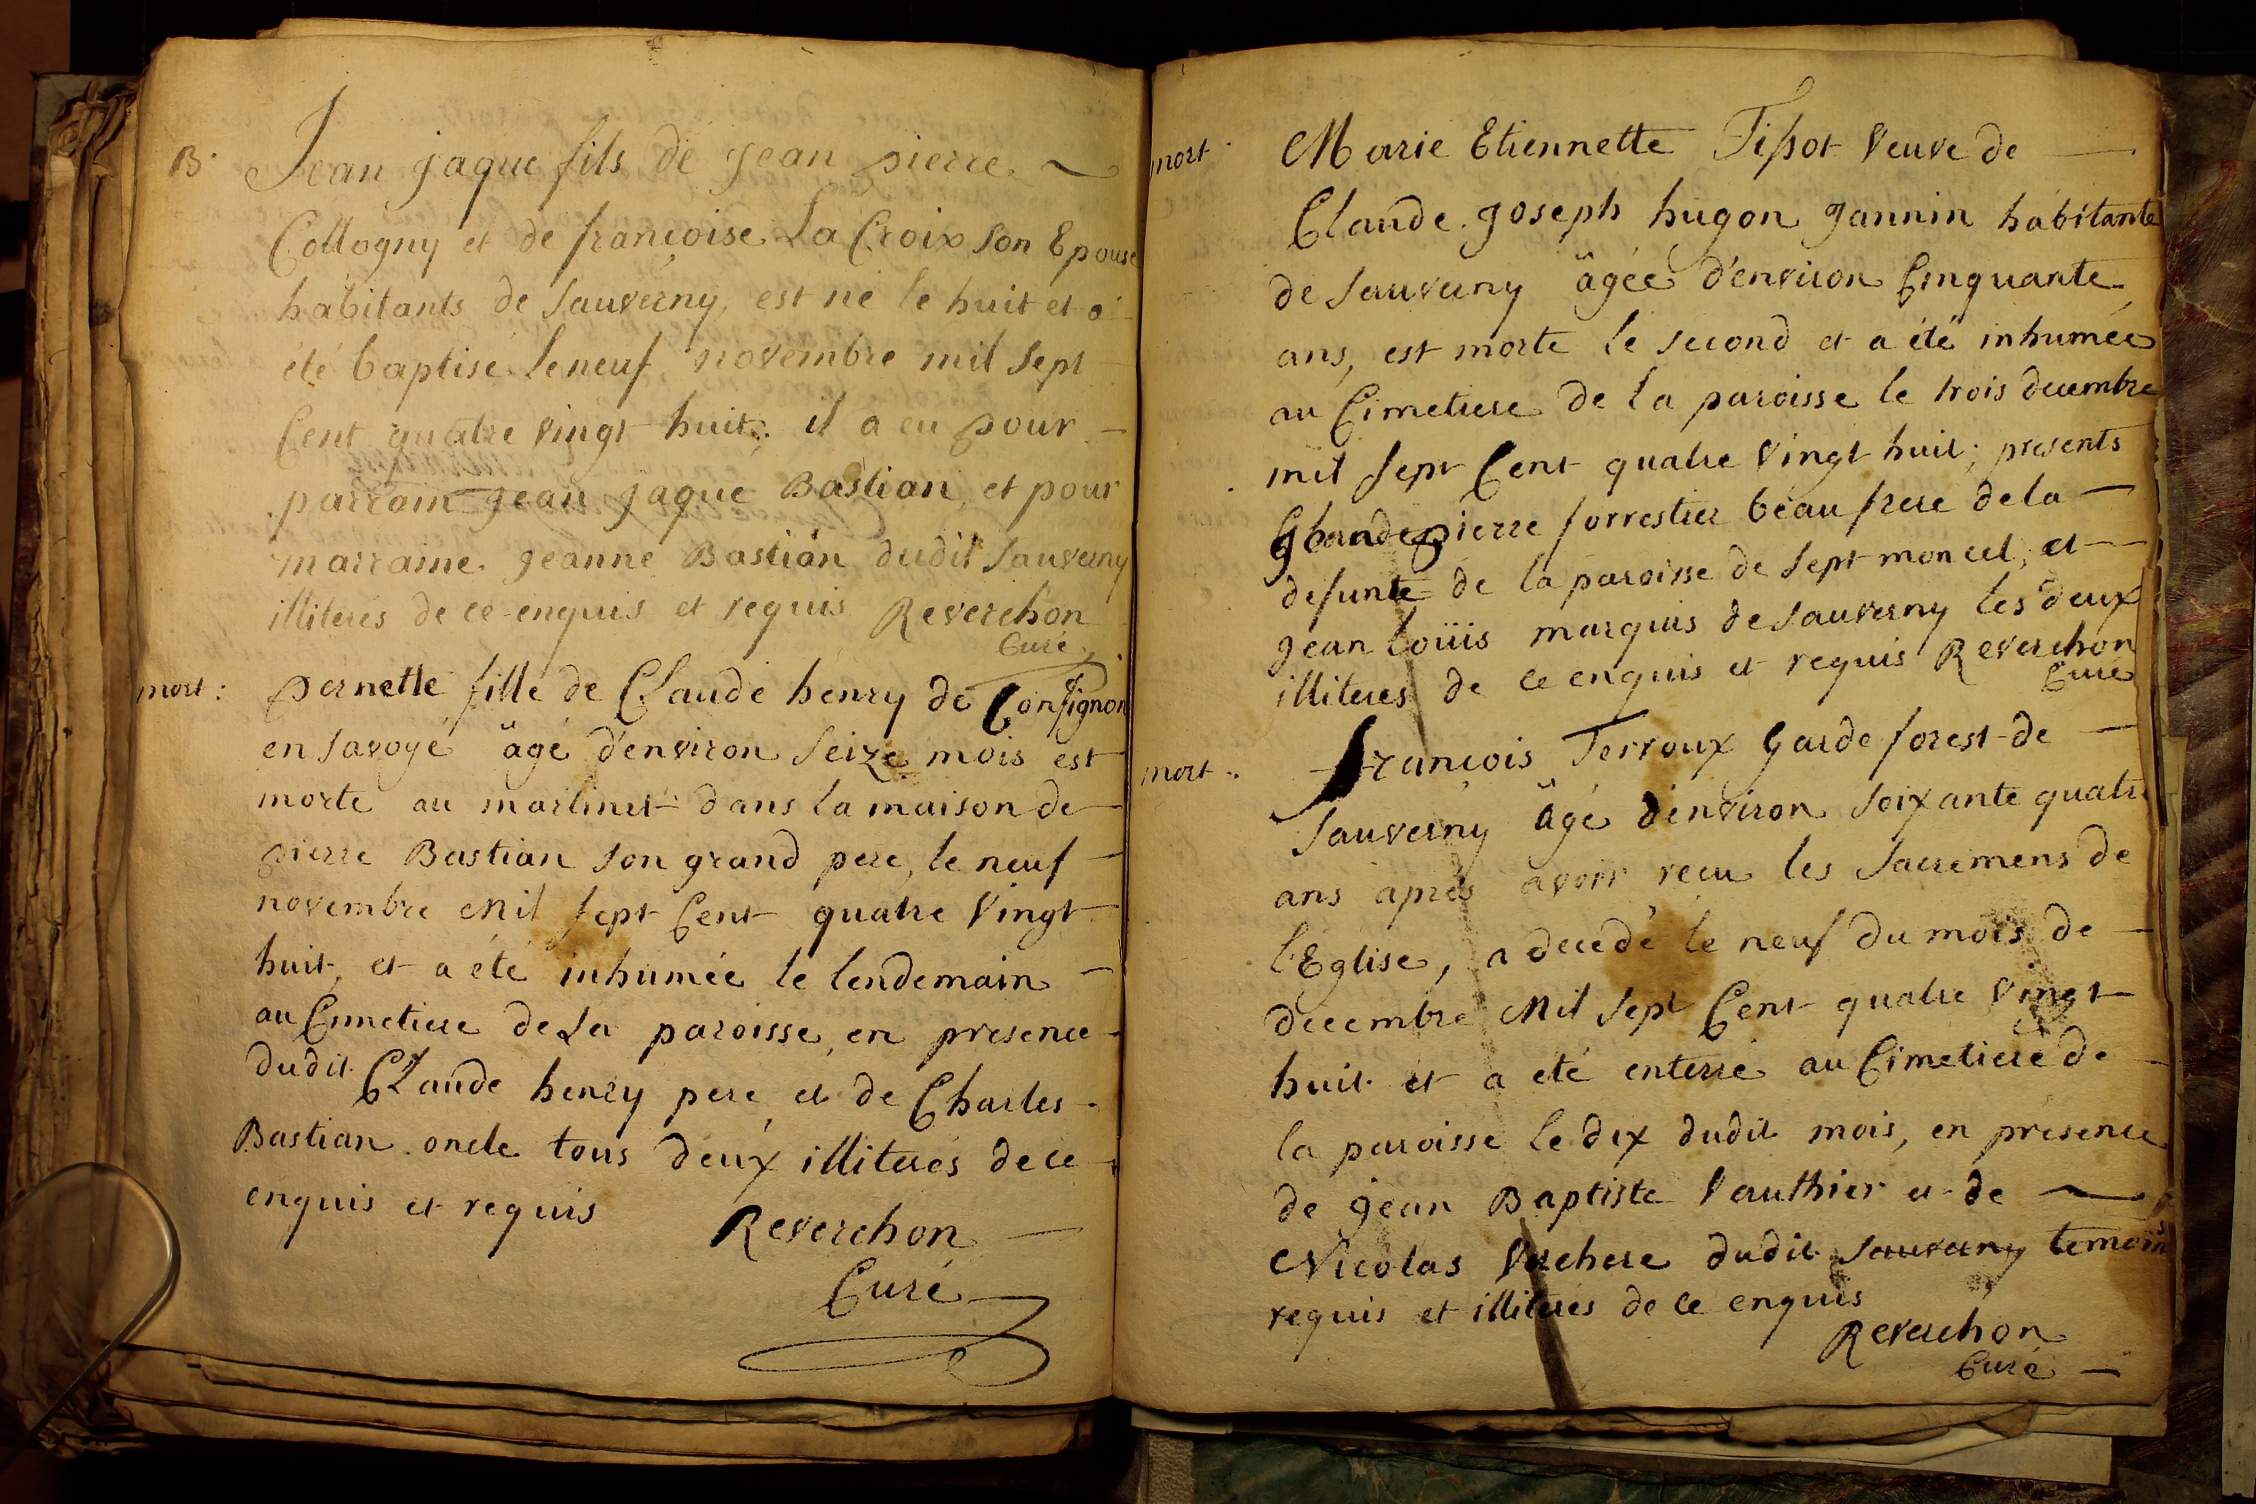 B. Jean jaque fils de jean pierre
Collogny et de françoise La Croix son Epouse
habitants de Sauverny, est né le huit et a
été baptisé le neuf novembre mil sept
Cent quatre vingt huit; il a eu pour
parrain jean jaque Bastian, et pour
marraine jeanne Bastian dudit Sauverny
illiterés de ce enquis et requis Reverchon
Curé
mort: pernette fille de Claude henry de Confignon
en savoye âgé d'environ seize mois est
morte au martinet dans la maison de
pierre Bastian son grand pere, le neuf
novembre Mil sept Cent quatre vingt
huit, et a été inhumée le lendemain
au Cimetiere de La paroisse, en presence
dudit Claude henry pere et de Charles
Bastian oncle tous deux illiterés de ce
enquis et requis Reverchon
Curé
mort. Marie Etiennette Tissot veuve de
Claude joseph hugon jannin habitante
de Sauverny âgée d'environ Cinquante
ans, est morte le second et a été inhumée
au Cimetiere de la paroisse le trois decembre
mil sept Cent quatre vingt huit; presents
Claude pierre forrestier beau frere de la
defunte de la paroisse de sept moncel, et
jean loüis marquis de Sauverny les deux
illiterés de ce enquis et requis Reverchon
Curé
mort: françois Terroux garde forest de
Sauverny âgé d'environ soixante quatre
ans après avoir recu les Sacremens de
l'Eglise, a decedé le neuf du mois de
decembre Mil sept Cent quatre vingt
huit et a eté enterré au Cimetiere de
la paroisse le dix dudit mois, en presence
de jean Baptiste Vauthier et de
Nicolas Verchere dudit Sauverny temoins
requis et illiterés de ce enquis
Reverchon
Curé